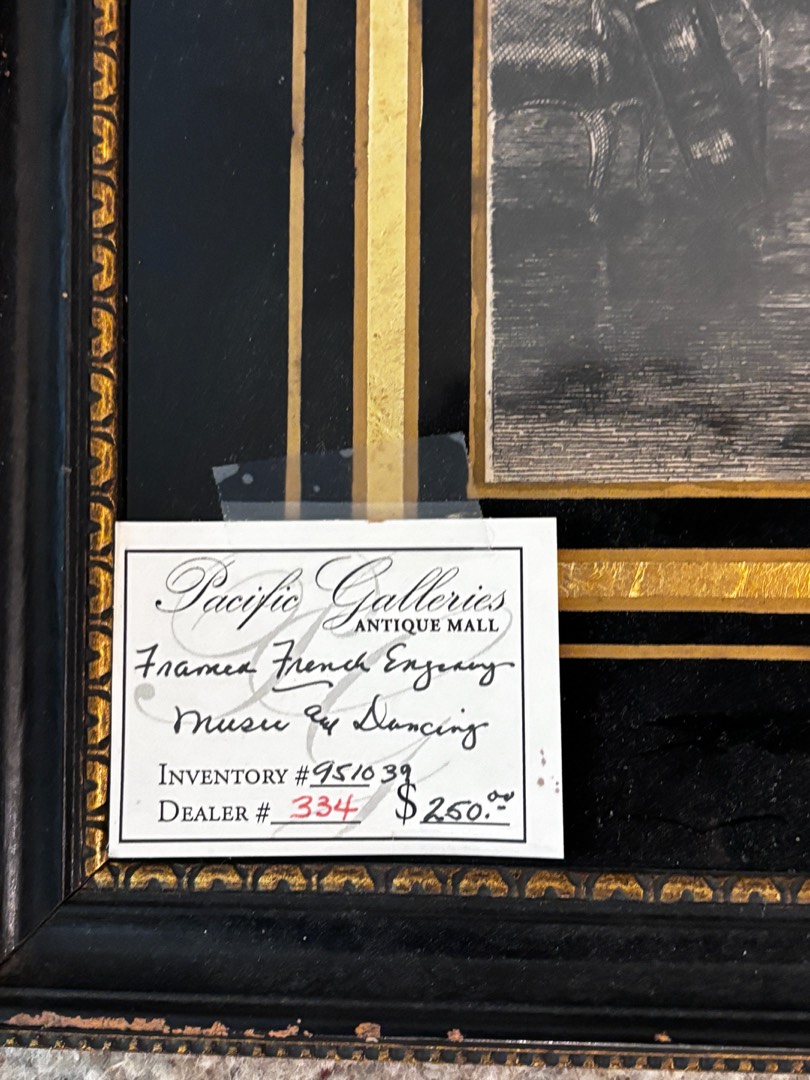 Pacific Galleries
ANTIQUE MALL
Framed French Engraving
Music and Dancing
INVENTORY # 951039
DEALER # 334 $250.00